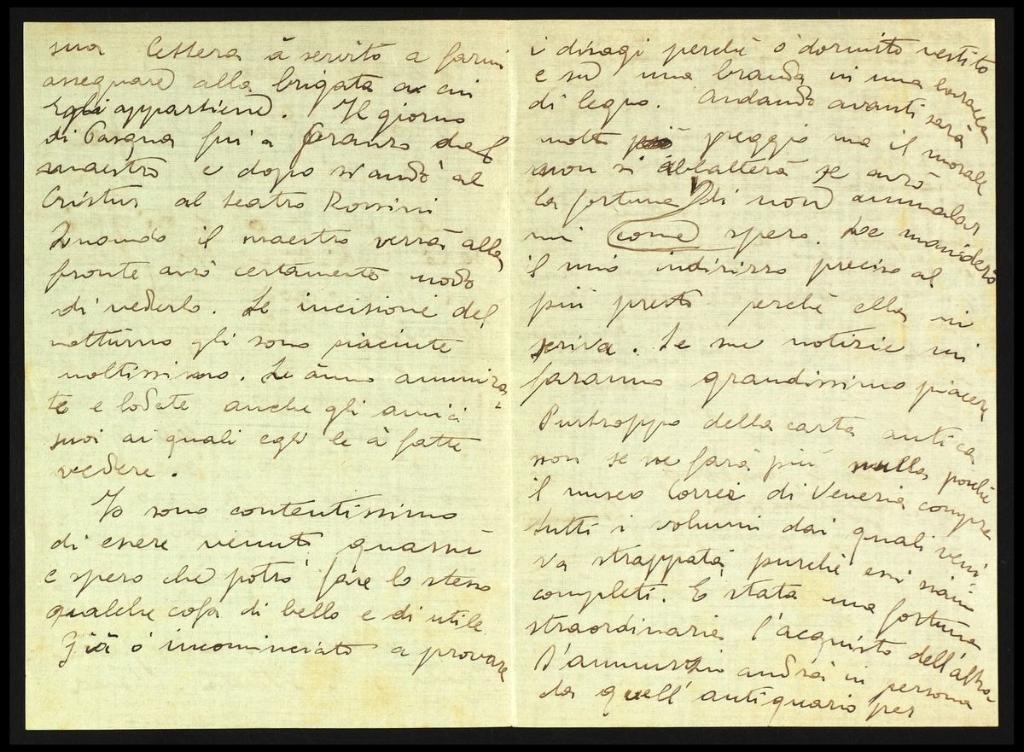 sua lettera à servito a farmi
assegnare alla brigata a cui
Egli appartiene. Il giorno
di Pasqua fui a pranzo dal
maestro e dopo si andò al
Cristus al teatro Rossini
Quando il maestro verrà alla
fronte avrò certamente modo
di vederlo. Le incisioni del
notturno gli sono piaciute
moltissimo. Le ànno ammira-
te e lodate anche gli amici
suoi ai quali egli le à fatte
vedere.
Io sono contentissimo
di essere venuto quassù
e spero che potrò fare lo stesso
qualche cosa di bello e di utile
Già ò incominciato a provare
i disagi perchè ò dormito vestito
e su una branda in una baracca
di legno. Andando avanti sarà
molto peggio ma il morale
non si abbatterà se avrò
la fortuna di non ammalar
mi come spero. Le manderò
il mio indirizzo preciso al
più presto perchè ella mi
scriva. Le sue notizie mi
faranno grandissimo piacere
Purtroppo della carta antica
non se ne farà più nulla poichè
il museo Correr di Venezia compra
tutti i volumi dai quali veni-
va strappata, purchè essi siano
completi. È stata una fortuna
straordinaria l'acquisto dell'altra
D'annunzio andrà in persona
da quell'antiquario per